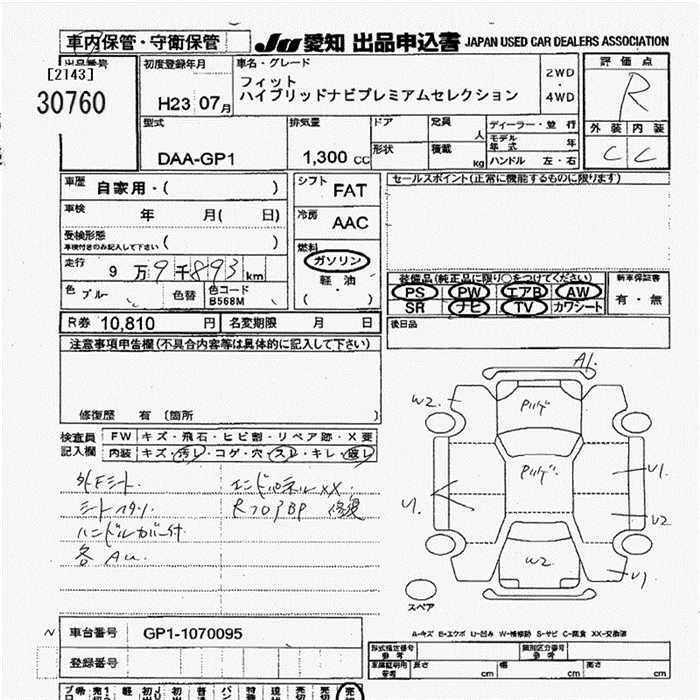 車内保管・守衛保管
JU 愛知 出品申込書 JAPAN USED CAR DEALERS ASSOCIATION
出品番号
[2143]
30760
初度登録年月
H23 07月
車名・グレード
フィット
ハイブリッドナビプレミアムセレクション
2WD
・
4WD
評価点
R
外装 内装
C C
型式
DAA-GP1
排気量
1,300 cc
ドア
形状
定員
人
積載
kg
ディーラー・並行
モデル年式 年
ハンドル 左・右
車歴 自家用・( )
車検 年 月( 日)
受検形態
車検付きのみ記入して下さい ( )
走行 9万9千893km
色 ブルー 色替 色コード
B568M
シフト FAT
冷房 AAC
燃料
ガソリン
軽油
( ・ )
セールスポイント(正常に機能するものに限ります)
装備品(純正品に限り○をつけてください)
PS PW エアB AW
SR ナビ TV カワシート
新車保証書
有・無
後日品
R券 10,810 円
名変期限 月 日
注意事項申告欄(不具合内容等は具体的に記入して下さい)
修復歴 有 〔箇所 〕
検査員記入欄
FW キズ・飛石・ヒビ割・リペア跡・X要
内装 キズ・汚レ・コゲ・穴・スレ・キレ・破レ
エンドパネルXX.
ハンドルカバー付
各AU.
修復
A1.
W2.
U1
U2
U1
W2
スペア
A-キズ E-エクボ U-凹み W-補修跡 S-サビ C-腐食 XX-交換済
車台番号 GP1-1070095
登録番号
形式指定番号
参考
類別区分番号
参考
車庫証明用
参考
長さ cm
幅 cm
高さ cm